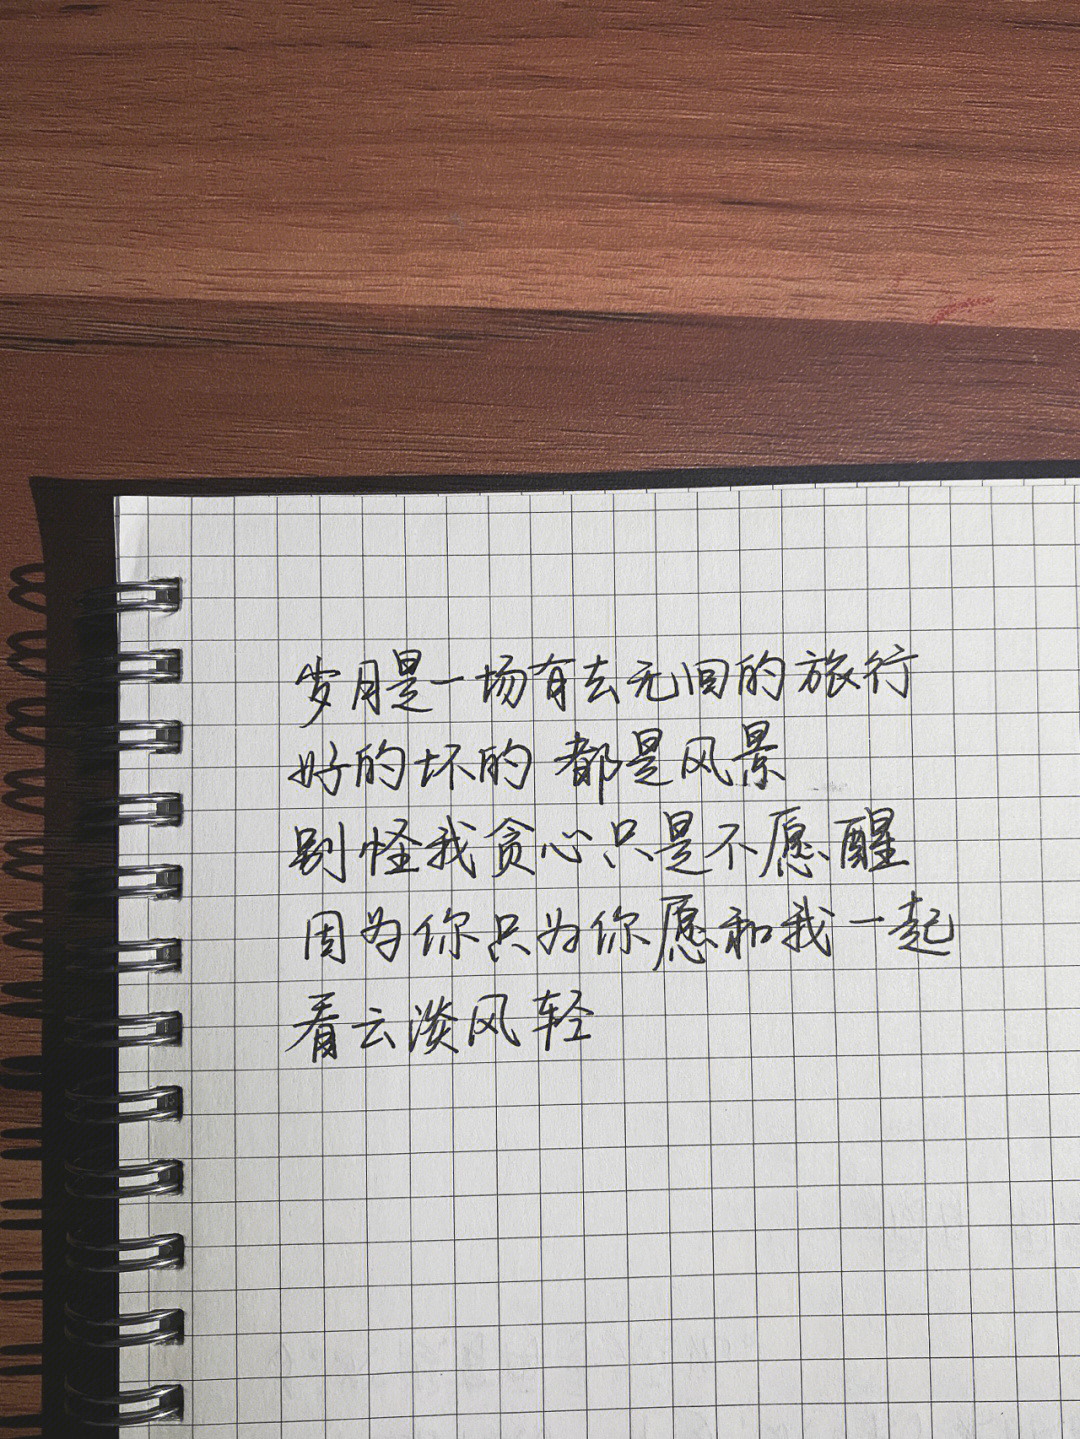 岁月是一场有去无回的旅行
好的坏的 都是风景
别怪我贪心只是不愿醒
因为你只为你愿和我一起
看云淡风轻